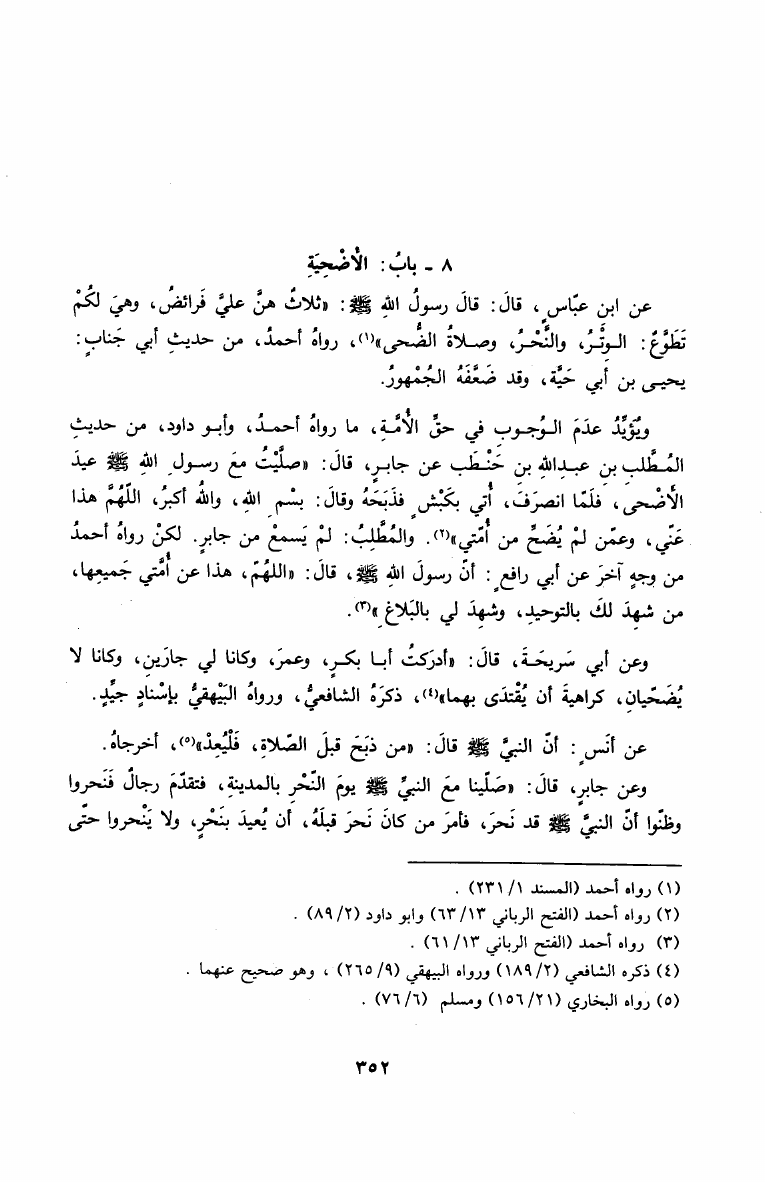 ٨ - بابُ: الْأُضْحِيَةِ
عن ابن عبّاسٍ، قالَ: قالَ رسولُ اللهِ ﷺ: «ثلاثٌ هنَّ عليَّ فَرائضُ، وهيَ لكُمْ
تَطَوُّعٌ: الوِتْرُ، والنَّحْرُ، وصلاةُ الضُّحى»(١)، رواهُ أحمدُ، من حديثِ أبي جَنابٍ:
يحيى بن أبي حَيَّة، وقد ضَعَّفَهُ الجُمْهورُ.
ويُؤيِّدُ عدَمَ الوُجوبِ في حقِّ الأُمَّةِ، ما رواهُ أحمدُ، وأبو داود، من حديثِ
المُطَّلب بن عبدالله بن حَنْطَب عن جابرٍ، قالَ: «صلَّيْتُ معَ رسولِ اللهِ ﷺ عيدَ
الأضْحى، فلَمّا انصرَفَ، أُتي بكَبْشٍ فذَبَحَهُ وقالَ: بسْمِ اللهِ، واللهُ أكبرُ، اللّهُمَّ هذا
عَنّي، وعمّن لمْ يُضَحِّ من أُمّتي»(٢). والمُطَّلِبُ: لمْ يَسمعْ من جابرٍ. لكنْ رواهُ أحمدُ
من وجهٍ آخرَ عن أبي رافعٍ: أنّ رسولَ اللهِ ﷺ، قالَ: «اللهُمّ، هذا عن أُمَّتي جَميعِها،
من شهِدَ لكَ بالتوحيدِ، وشهِدَ لي بالبَلاغِ»(٣).
وعن أبي سَريحَةَ، قالَ: «أدرَكتُ أبا بكرٍ، وعمرَ، وكانا لي جارَينِ، وكانا لا
يُضَحّيانِ، كراهيةَ أن يُقْتدَى بهما»(٤)، ذكرَهُ الشافعيُّ، ورواهُ البَيْهقيُّ بإسْنادٍ جيِّدٍ.
عن أنَسٍ: أنّ النبيَّ ﷺ قالَ: «من ذبَحَ قبلَ الصّلاةِ، فَلْيُعِدْ»(٥)، أخرجاهُ.
وعن جابرٍ، قالَ: «صَلّينا معَ النبيِّ ﷺ يومَ النّحْرِ بالمدينةِ، فتقدّمَ رجالٌ فَنَحروا
وظنّوا أنّ النبيَّ ﷺ قد نَحرَ، فأمرَ من كانَ نَحرَ قبلَهُ، أن يُعيدَ بنَحْرٍ، ولا يَنْحروا حتّى
(١) رواه أحمد (المسند ١/ ٢٣١) .
(٢) رواه أحمد (الفتح الرباني ١٣/ ٦٣) وابو داود (٢/ ٨٩) .
(٣) رواه أحمد (الفتح الرباني ١٣/ ٦١) .
(٤) ذكره الشافعي (٢/ ١٨٩) ورواه البيهقي (٩/ ٢٦٥) ، وهو صحيح عنهما .
(٥) رواه البخاري (٢١/ ١٥٦) ومسلم (٦/ ٧٦) .
٣٥٢